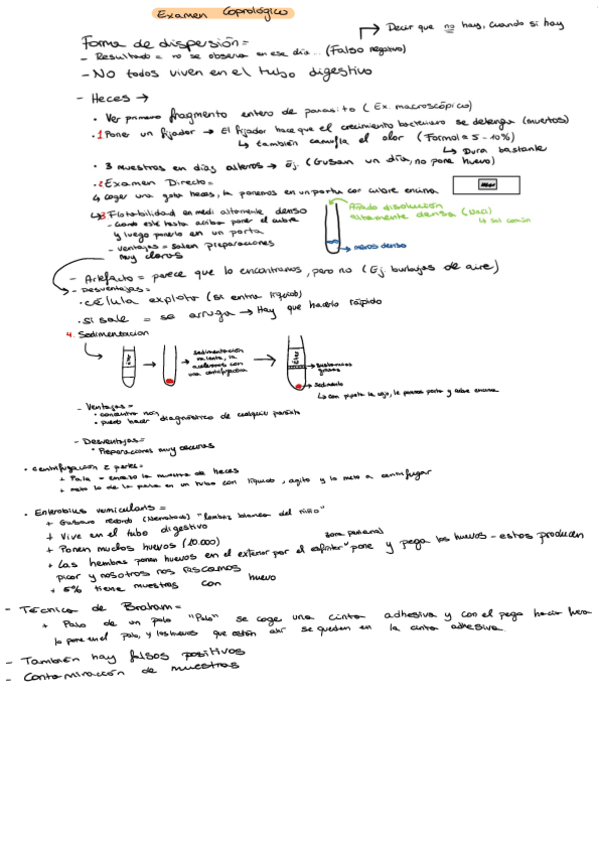 Examen Coprológico
Decir que no hay, cuando si hay
Forma de dispersión =
- Resultado = no se observa en ese día... (Falso negativo)
- No todos viven en el tubo digestivo
- Heces →
• Ver primero fragmento entero de parasito (Ex. macroscópico)
• 1 Poner un fijador → El fijador hace que el crecimiento bacteriano se detenga (muertos)
↳ también camufla el olor (Formol = 5 - 10%)
↳ Dura bastante
• 3 muestras en días alternos → Ej. (Gusan un día, no pone huevo)
• 2 Examen Directo =
↳ coger una gota heces, la ponemos en un porta con cubre encima
↳ 3 Flotabilidad en medi altamente denso
- cuando este hasta arriba poner el cubre
y luego ponerlo en un porta
- ventajas = salen preparaciones
muy claras
Añado disolución
altamente densa (NaCl)
↳ sal común
menos denso
- Artefacto = parece que lo encontramos, pero no (Ej. burbujas de aire)
- Desventajas =
• célula explota (si entra líquido)
• si sale = se arruga → Hay que hacerlo rápido
4. Sedimentacion
sedimentación
es lenta, la
aceleramos con
una centrifugación
éter
sustancias
grasas
sedimento
↳ con pipeta la cojo, lo ponemos porta y cubre encima
- Ventajas =
• concentra más
• puedo hacer diagnóstico de cualquier parásito
- Desventajas =
• Preparaciones muy oscuras
• Centrifugacion 2 partes =
+ Pala = envaso la muestra de heces
+ meto lo de la pala en un tubo con líquido, agito y lo meto a centrifugar
• Enterobius vermicularis =
+ Gusano redondo (Nematodo) "lombriz blanca del niño"
+ Vive en el tubo digestivo
+ Ponen muchos huevos (10.000)
zona perianal
+ Las hembras ponen huevos en el exterior por el esfinter "pone y pega los huevos - estos producen
picor y nosotros nos rascamos
+ 5% tiene muestras con huevo
- Técnica de Braham =
+ Palo de un polo "Palo" se coge una cinta adhesiva y con el pego hacia fuera
lo pone en el palo, y los huevos que están ahí se quedan en la cinta adhesiva.
- También hay falsos positivos
- Contaminacción de muestras